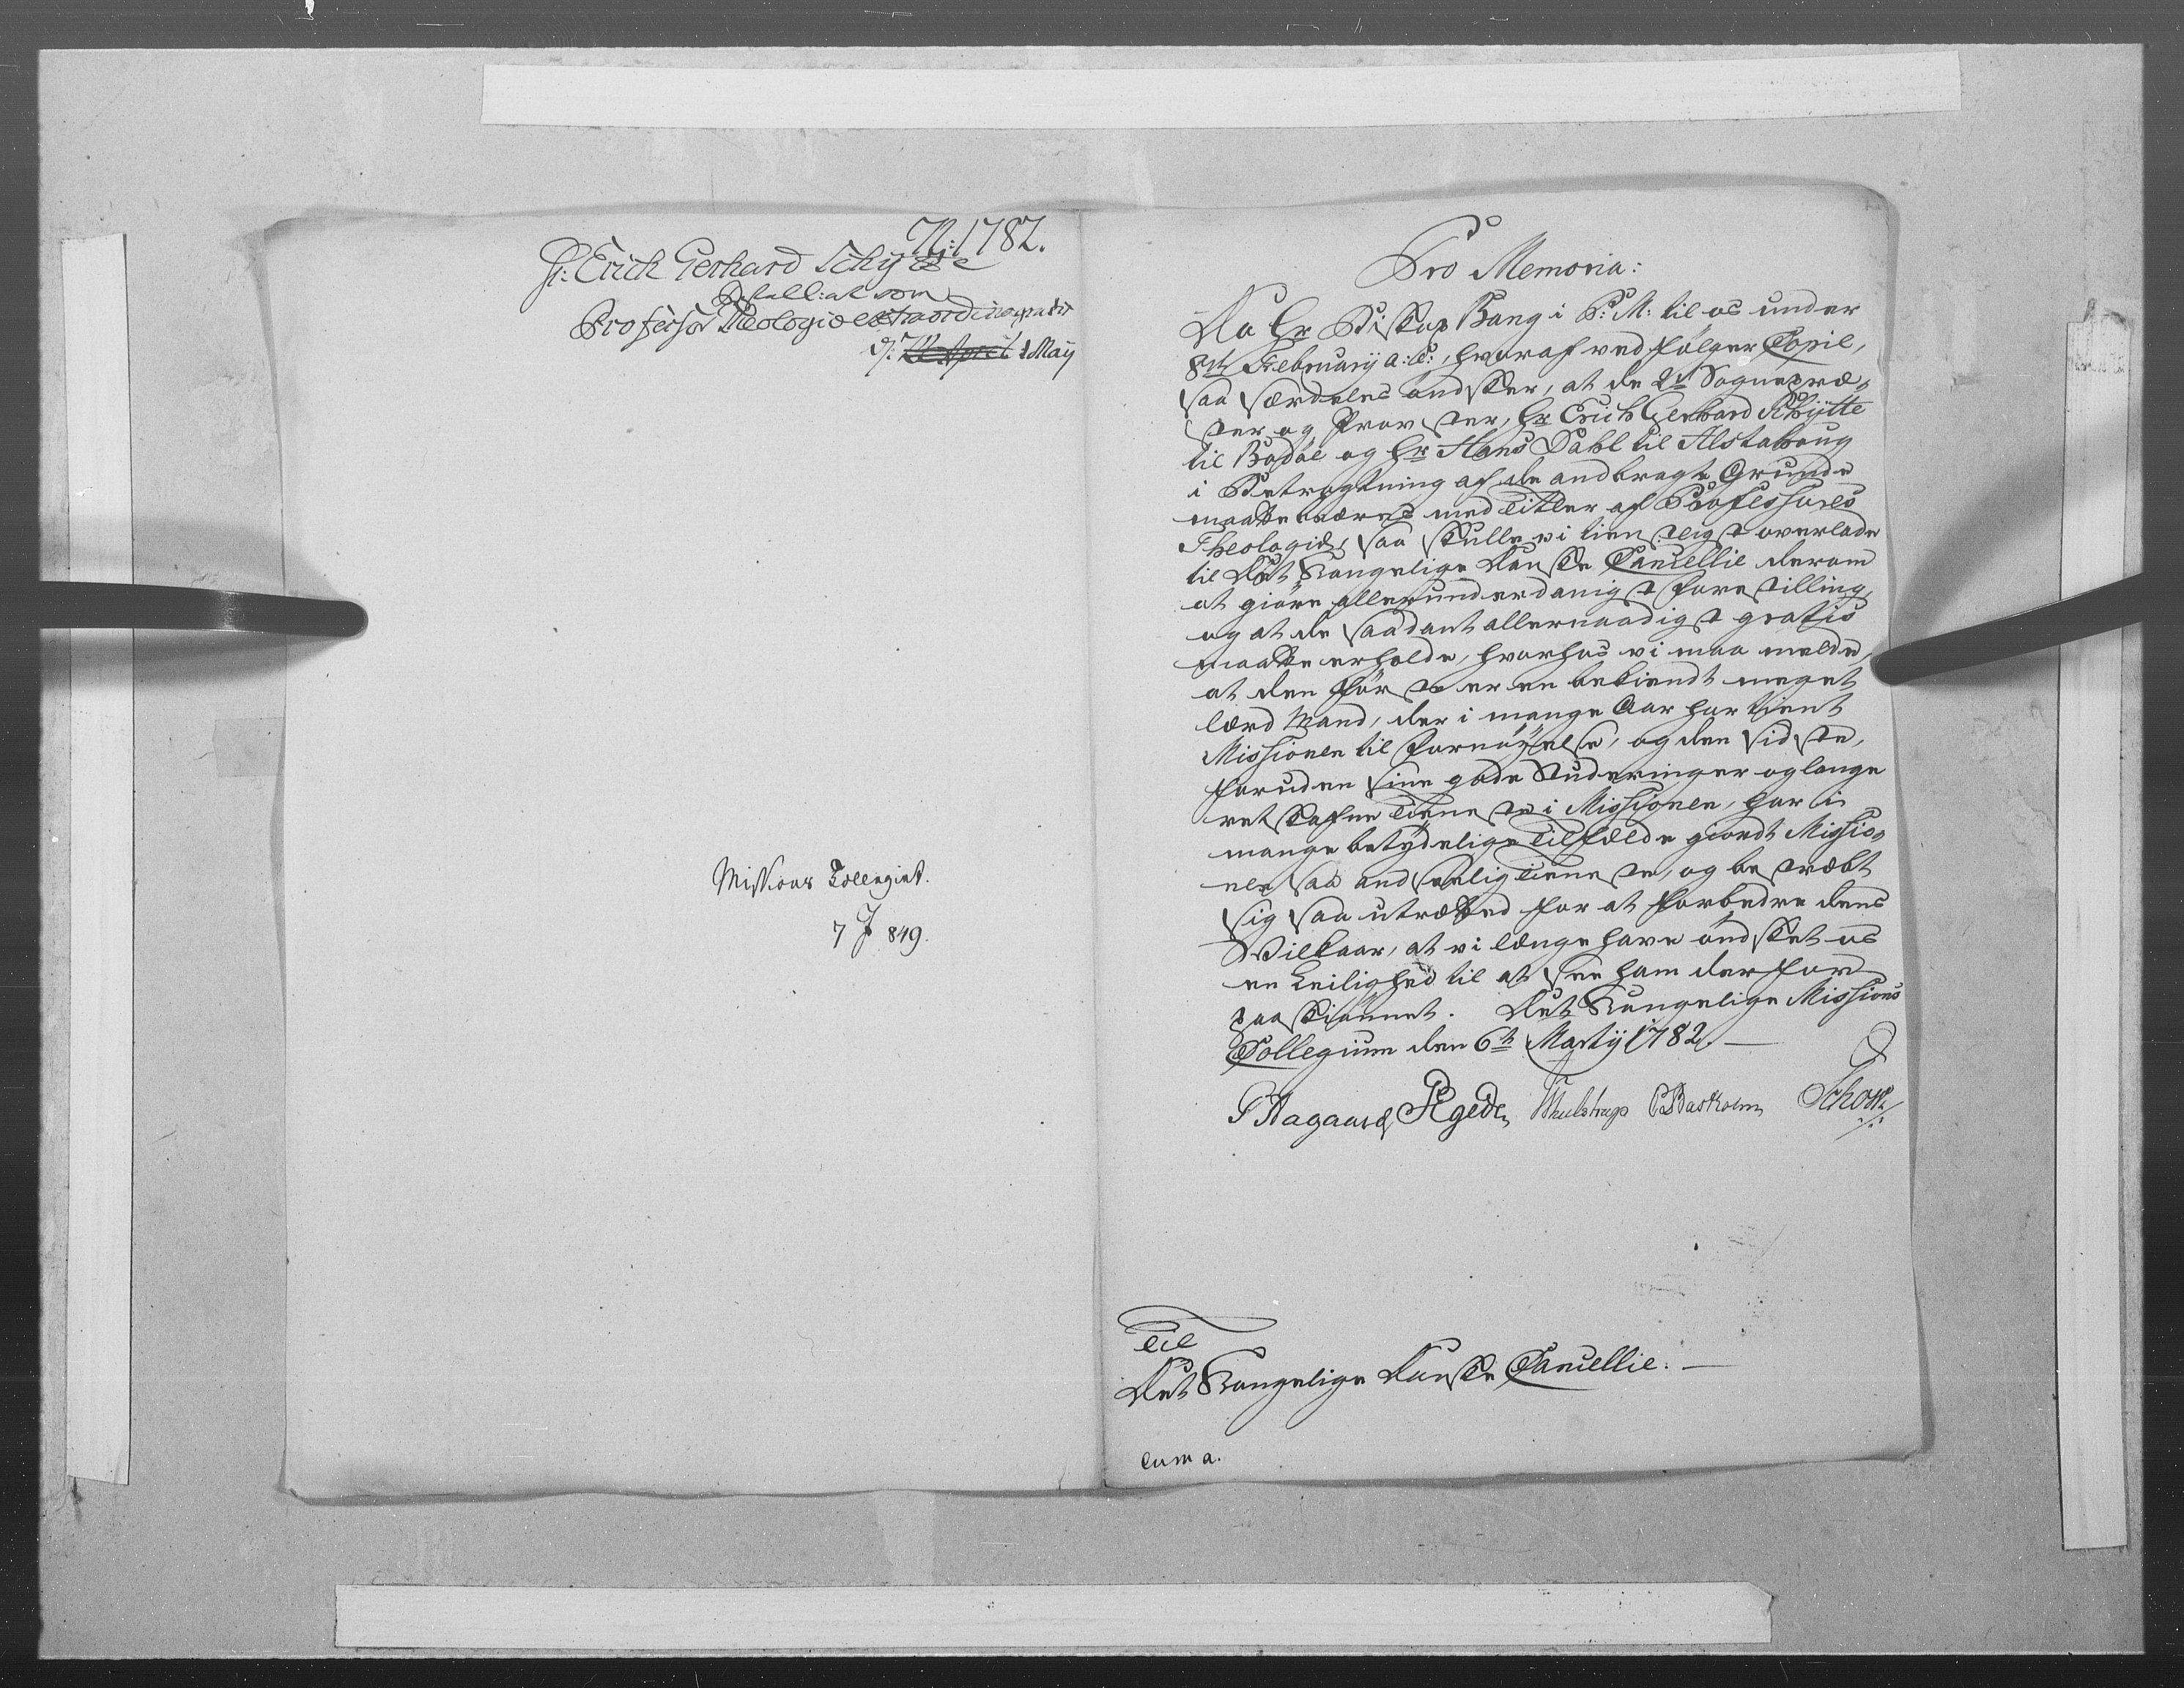 N: 1782.
Hr: Erich Gerhard Schytte
Bestall: at som
Professor Theologiæ extraordin: gratis
d: 1 Maij
Missions Collegiet.
7 J 849.
Pro Memoria:
Da Hr Biskop Bang i P: M: til os under
8de Februarij a: c:, hvoraf ved følger Copie,
saa særdeles ønsker, at de 2de Sognepræ-
ster og Provster, Hr Erich Gerhard Schÿtte
til Bodøe og Hr Hans Dahl til Alstahoug
i Betragtning af de andbragte Grunde
maatte æres med Titler af Professores
Theologiæ, saa skulle vi tienstligst overlade
til Det Kongelige Danske Cancellie derom
at giøre allerunderdanigst Forestilling,
og at de saadant allernaadigst gratis
maatte erholde, hvorhos vi maa melde,
at den første er en bekiendt meget
lærd Mand, der i mange Aar har tient
Missionen til Fornøÿelse, og den sidste,
foruden sine gode Studeringer og lange
retskafne Tieneste i Missionen, har i
mange betÿdelige Tilfælde giordt Missio-
nen saa andseelig Tieneste, og bestræbt
sig saa utrætted for at forbedre dens
Vilkaar, at vi længe have ønsket os
en Leilighed til at see ham derfor
paaskiønnet. Det Kongelige Missions
Collegium den 6te Martÿ 1782. —
T Aagaard Egede Thulstrup C Bastholm Schow
Til
Det Kongelige Danske Cancellie. —
cum a.